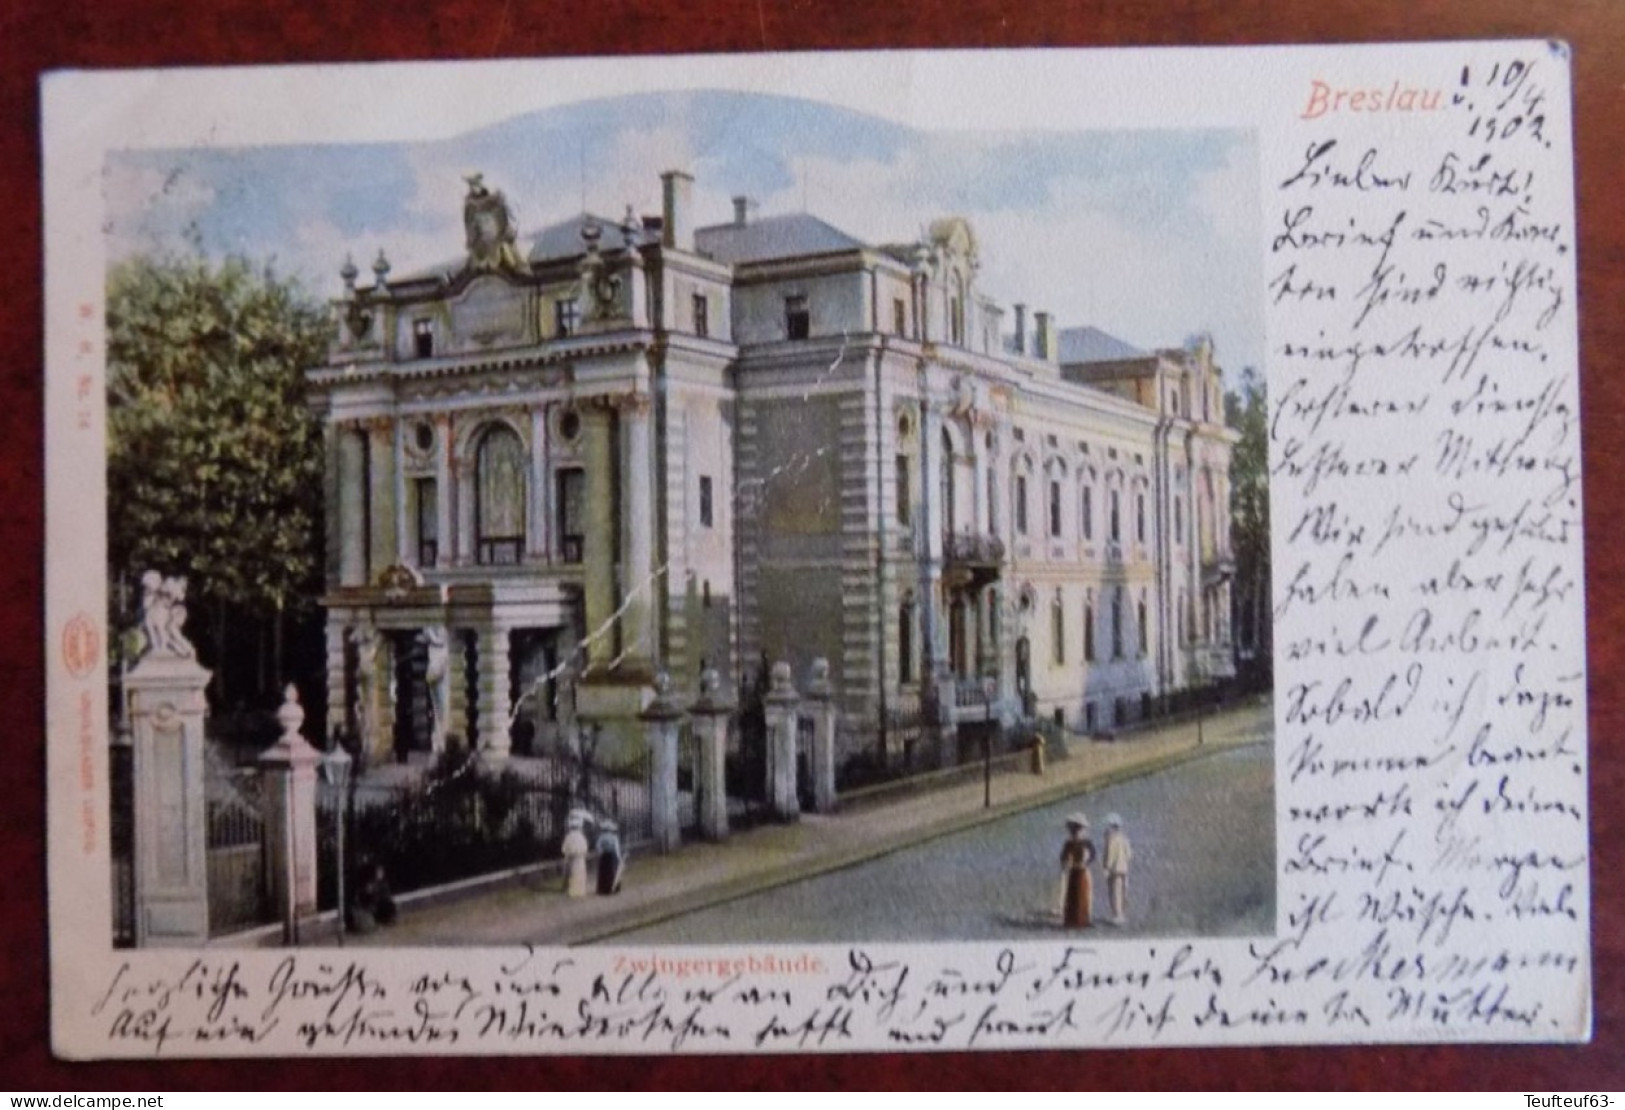 Breslau. d. 10/4
1902.
Lieber Kurt!
Brief und Kar-
ten sind richtig
eingetroffen.
Ersterer Dienstag
Letzterer Mittwoch
Wir sind gesund
haben aber sehr
viel Arbeit.
Sobald ich dazu
komme beant-
worte ich deinen
Brief. Morgen
ist Wäsche. Viele
herzliche Grüße von uns allen an Dich und Familie
Auf ein gesundes Wiedersehen hofft und freut sich deine tr. Mutter.
Zwingergebäude.
W. H. Nr.
LOUIS GLASER LEIPZIG
Teufteuf63-